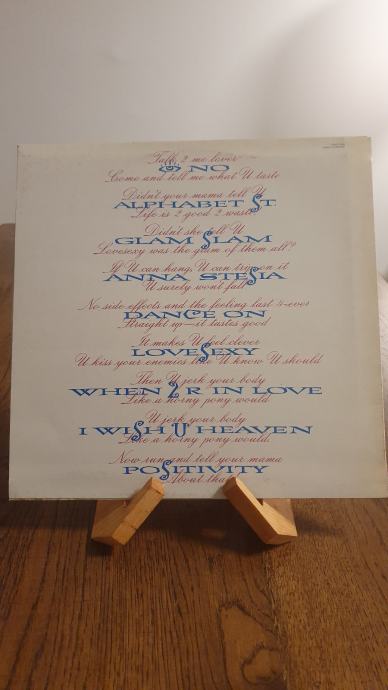 Talk 2 me lover
NO
Come and tell me what U taste
Didn't your mama tell U
ALPHABET ST
Life is 2 good 2 waste
Didn't she tell U
GLAM SLAM
Lovesexy was the glam of them all?
If U can hang, U can trip on it
ANNA STESIA
U surely won't fall
No side effects and the feeling last 4-ever
DANCE ON
Straight up—it tastes good
It makes U feel clever
LOVESEXY
U kiss your enemies like U know U should
Then U jerk your body
WHEN 2 R IN LOVE
Like a horny pony would
U jerk your body
I WISH U HEAVEN
Like a horny pony would
Now run and tell your mama
POSITIVITY
About that